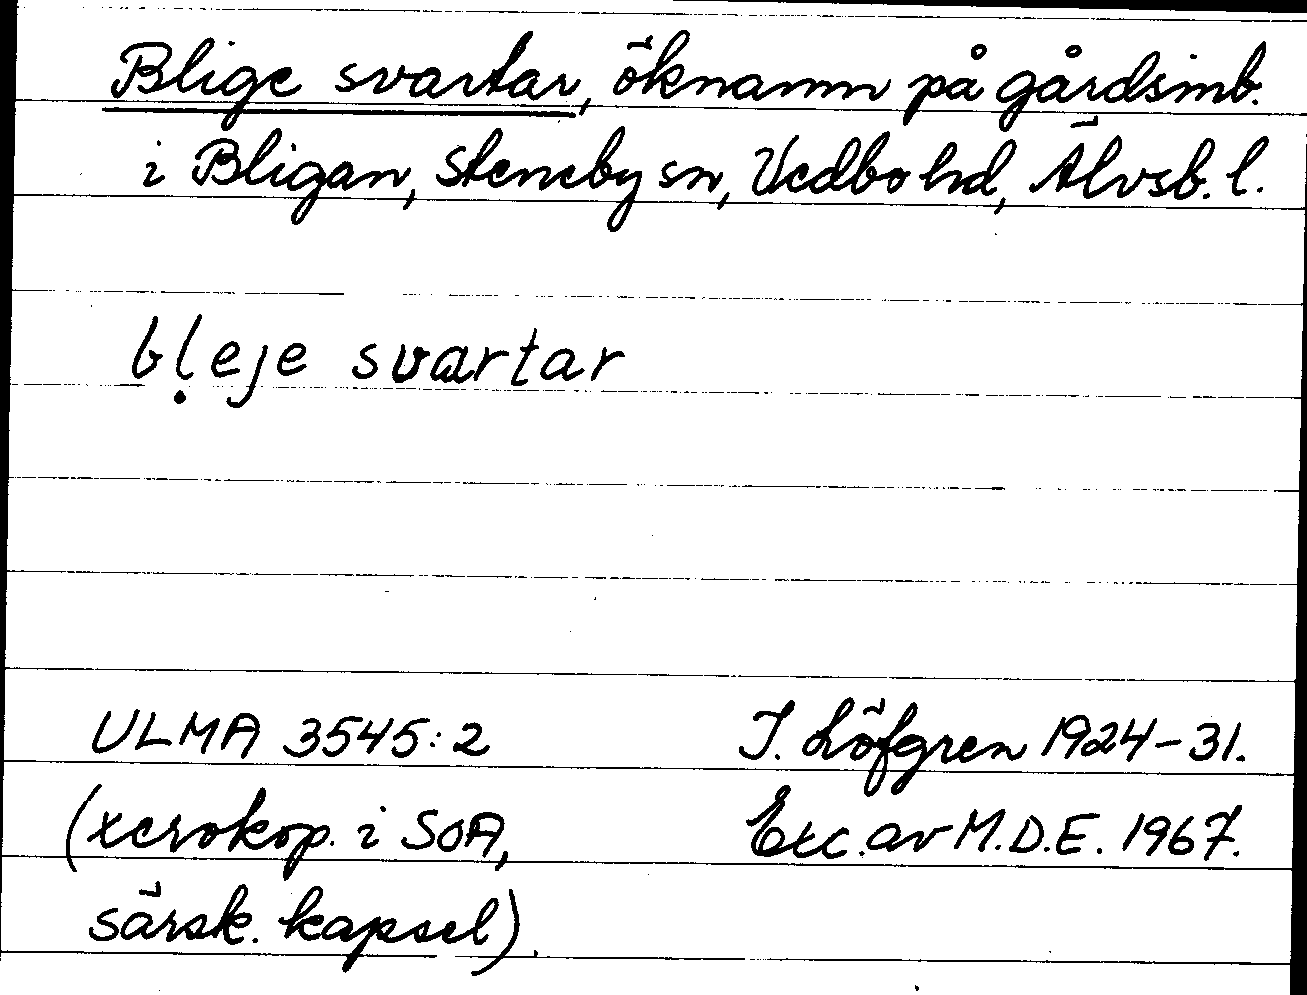 Blige svartar, öknamn på gårdsinb.
i Bligan, Steneby sn, Vedbo hd, Älvsb. l.
bḷeje svartar
ULMA 3545:2
J. Löfgren 1924-31.
(xerokop. i SOA,
Exc. av M.D.E. 1967.
särsk. kapsel).